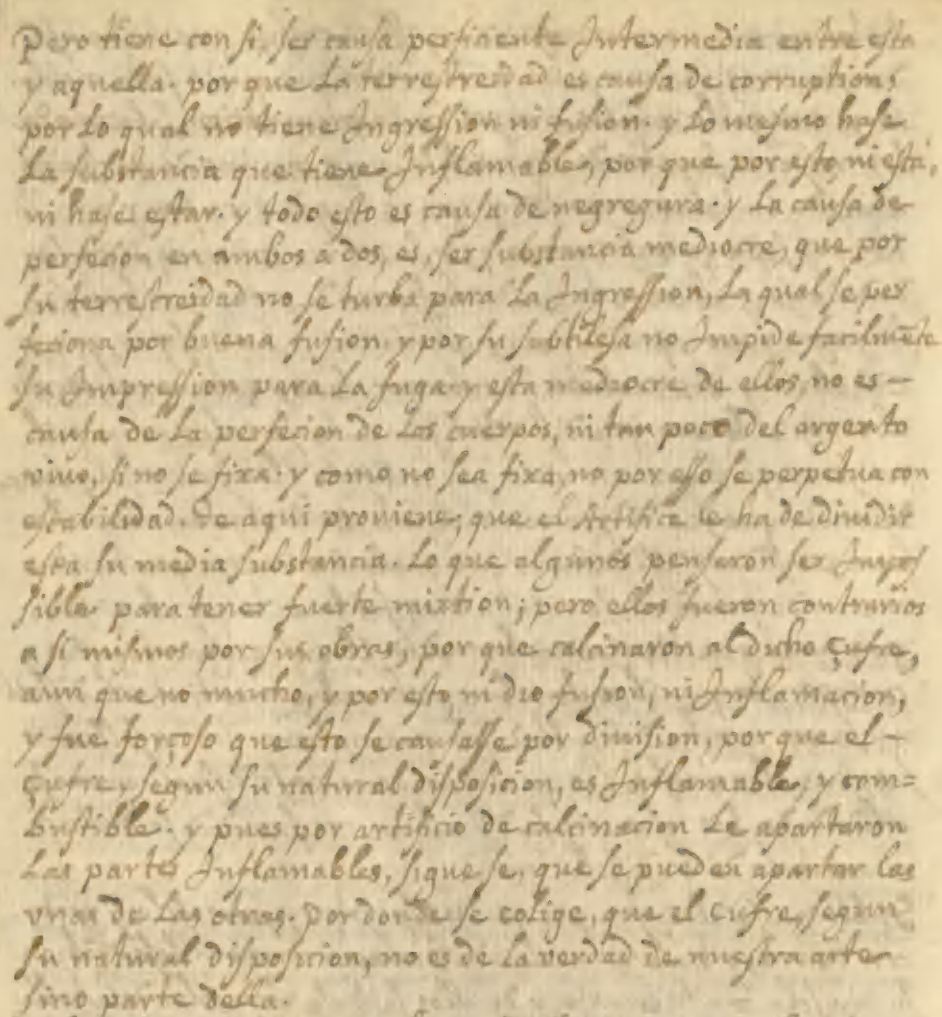 Pero tiene con si, ser causa perficiente Intermedia entre esta
y aquella. por que La terrestreidad es causa de corruption,
por Lo qual no tiene Ingression ni fusion. y Lo mesmo hase
La substancia que tiene Inflamable, por que por esto ni està,
ni hase estar. y todo esto es causa de negregura. y La causa de
perfecion en ambos a dos, es, ser substancia mediocre, que por
su terrestreidad no se turba para La Ingression, La qual se per
feciona por buena fusion. y por su subtilesa no Impide facilmẽte
su Impression para La fuga. y esta mediocre de ellos, no es –
causa de La perfecion de Los cuerpos, ni tan poco del argento
vivo, si no se fixa. y como no sea fixa, no por esso se perpetua con
estabilidad. de aqui proviene, que el Artifice le ha de dividir
esta su media substancia. Lo que algunos pensaron ser Impos
sible para tener fuerte mixtion; pero ellos fueron contrarios
a si mismos por sus obras, por que calcinaron al dicho çufre,
aun que no mucho, y por esto ni dio fusion, ni Inflamacion,
y fue forçoso que esto se causasse por division, por que el –
çufre, segun su natural disposicion, es Inflamable, y com=
bustible. y pues por artificio de calcinacion Le apartaron
Las partes Inflamables, sigue se, que se pueden apartar las
unas de Las otras. por donde se colige, que el çufre, segun
su natural disposicion, no es de La verdad de nuestra arte
sino parte della.